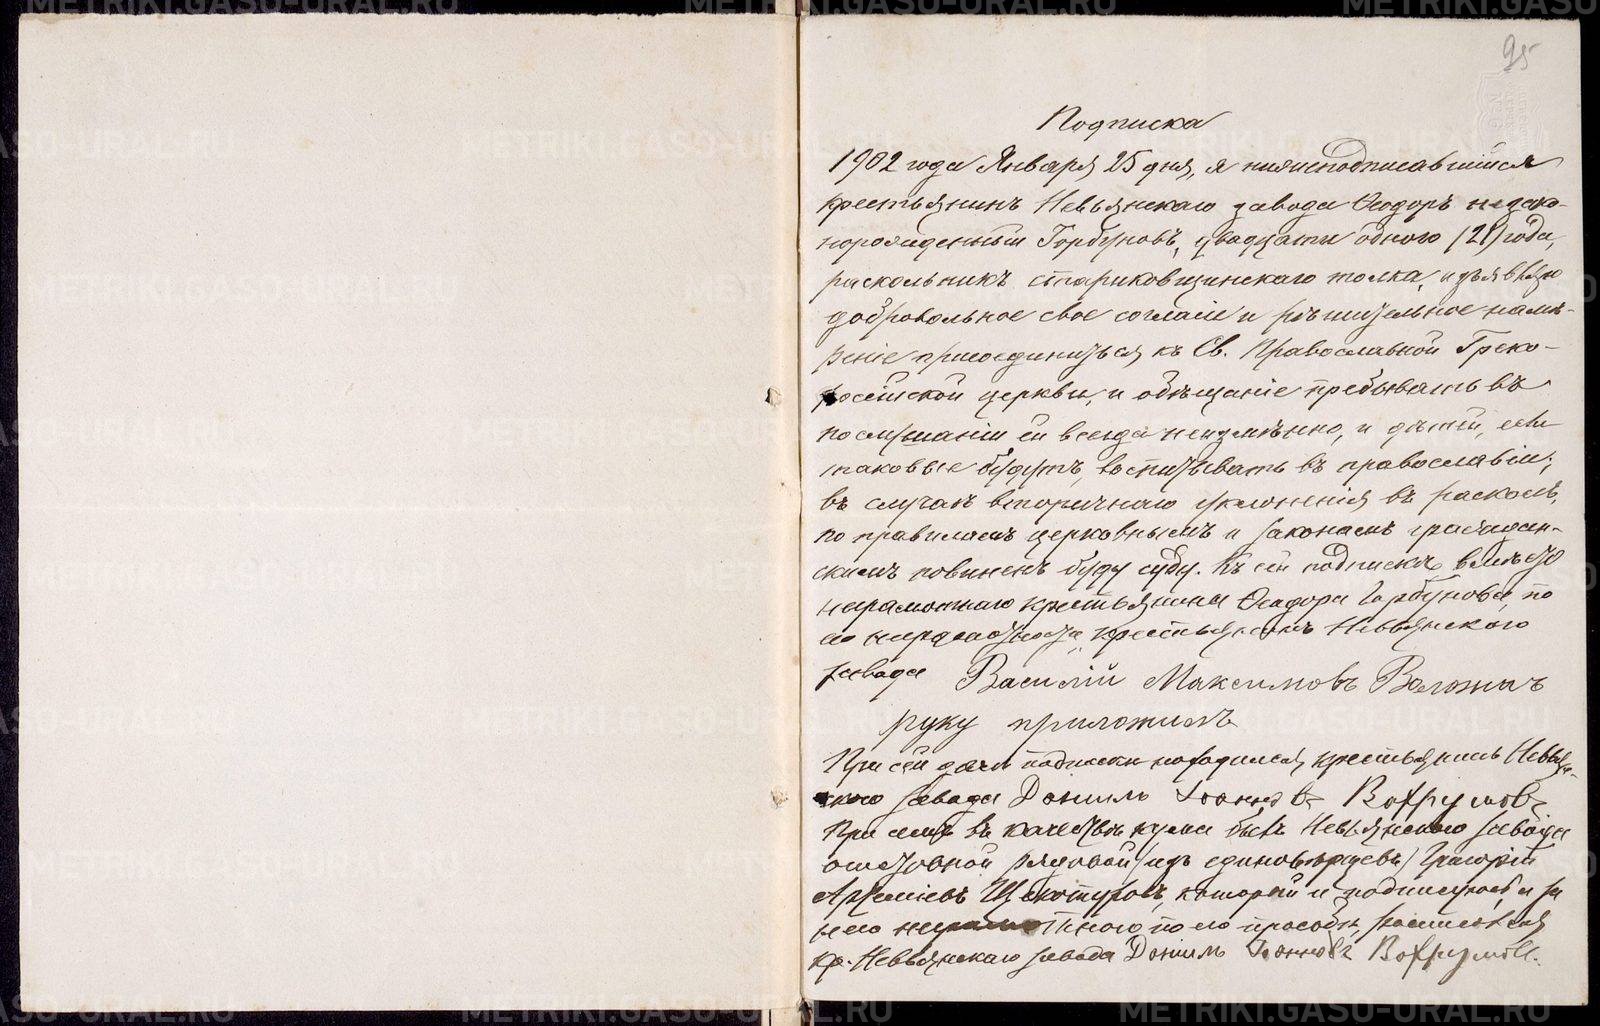 95
Подписка
1902 года Января 25 дня, я нижеподписавшийся
крестьянинъ Невьянскаго завода Ѳеодоръ незако-
норожденный Горбуновъ, двадцати одного (21) года,
раскольникъ стариковщинскаго толка, изъявляю
добровольное свое согласіе и рѣшительное намѣ-
реніе присоединиться къ Св. Православной Греко-
россійской церкви, и обѣщаніе пребывать въ
послушаніи ей всегда неизмѣнно, и дѣтей, если
таковые будутъ, воспитывать въ православіи;
въ случаѣ вторичнаго уклоненія въ расколъ,
по правиламъ церковнымъ и законамъ граждан-
скимъ повиненъ буду суду. Къ сей подпискѣ вмѣсто
неграмотнаго крестьянина Ѳеодора Горбунова, по
его неграмотности, крестьянинъ Невьянскаго
завода Василій Максимовъ Воложинъ
руку приложилъ
При сей дачи подписки находился крестьянинъ Невьян-
скаго завода Данилъ Іоанновъ Вахрумовъ
При семъ въ качествѣ кума былъ Невьянскаго завода
отставной рядовой (изъ единовѣрцевъ) Григорій
Щекотуровъ, который и подписуюсь, а за
него неграмотнаго по его прособѣ, росписался
кр. Невьянскаго завода Данилъ Іоанновъ Вахрумовъ.
METRIKI.GASO-URAL.RU